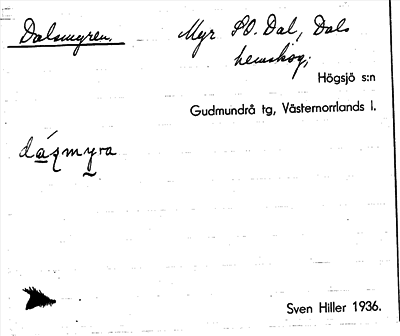 Dalsmyren. Myr SO. Dal, Dals
hemskog;
Högsjö s:n
Gudmundrå tg, Västernorrlands l.
dásmyra
Sven Hiller 1936.